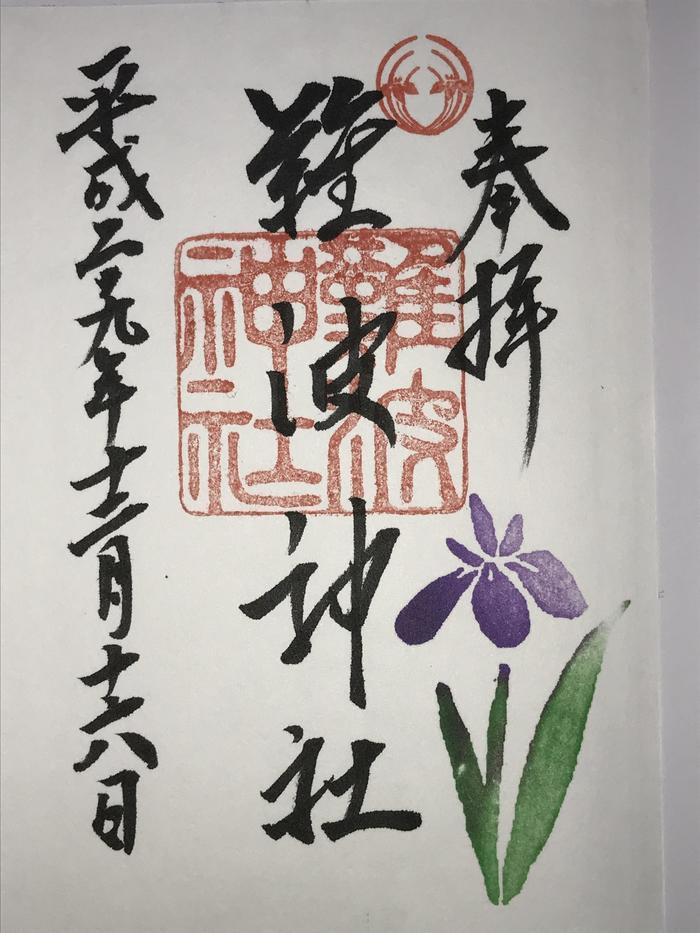 奉拝
難波神社
難波神社
平成二九年十二月十六日